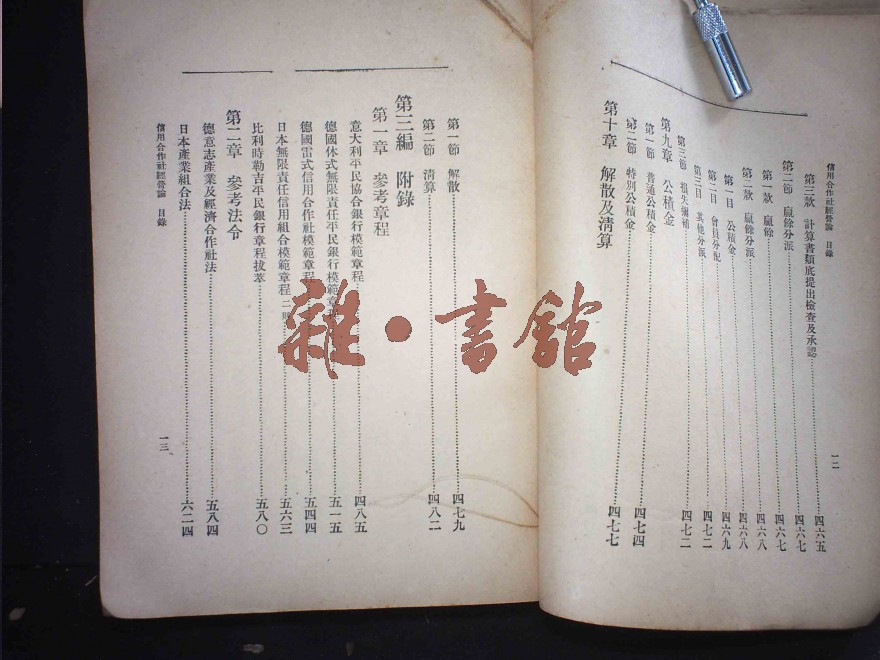 信用合作社經營論 目錄
第三款 計算書類底提出檢查及承認 四六五
第二節 贏餘分派 四六七
第一款 贏餘 四六七
第二款 贏餘分派 四六八
第一目 公積金 四六八
第二目 會員分配 四六九
第三目 其他分派 四七二
第三節 損失彌補 四七二
第九章 公積金
第一節 普通公積金 四七四
第二節 特別公積金 四七七
第十章 解散及清算
一二
第一節 解散 四七九
第二節 清算 四八二
第三編 附錄
第一章 參考章程
意大利平民協合銀行模範章程 四八五
德國休式無限責任平民銀行模範章 五一五
德國雷式信用合作社模範章程 五四四
日本無限責任信用組合模範章程 五六三
比利時勒吉平民銀行章程拔萃 五八〇
第二章 參考法令
德意志產業及經濟合作社法 五八四
日本產業組合法 六二四
信用合作社經營論 目錄
一三
雜·書館